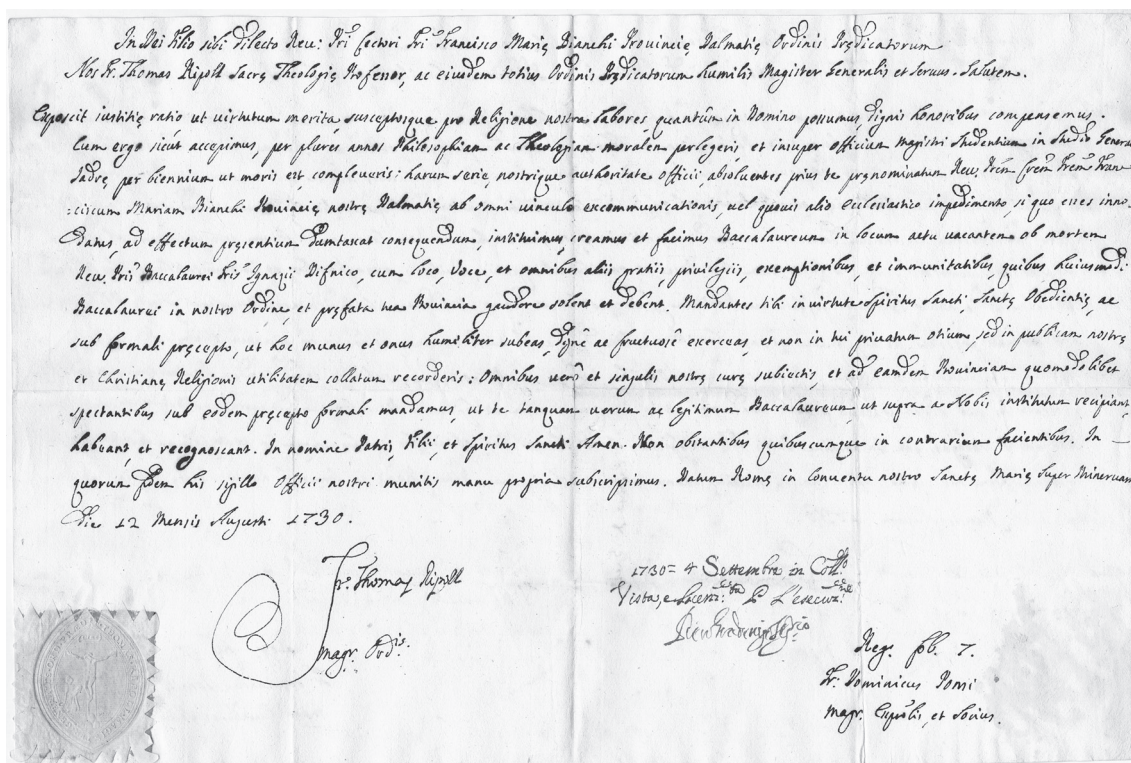 In Dei Filio sibi dilecto Reu: Pri Lectori Fri Francisco Marię Bianchi Prouincię Dalmatię Ordinis Prędicatorum
Nos Fr. Thomas Ripoll Sacrę Theologię Professor, ac eiusdem totius Ordinis Prędicatorum humilis Magister Generalis et seruus. Salutem.
Exposcit iustitię ratio ut uirtutum merita, susceptosque pro Religione nostra labores, quantùm in Domino possumus, dignis honoribus compensemus.
Cum ergo sicut accepimus, per plures annos Philosophiam ac Theologiam moralem perlegeris, et insuper officium Magistri Studentium in Studio General
Iadrę per biennium ut moris est, compleueris: harum serie, nostrique authoritate officii, absoluentes prius te prenominatum Reu. Frem Fran
=ciscum Mariam Bianchi Prouincię nostrę Dalmatię ab omni uinculo excommunicationis, uel quouis alio Ecclesiastico impedimento, si quo esses inno
datus, ad effectum pręsentium dumtaxat consequendum, instituimus creamus et facimus Baccalaureum in locum actu uacantem ob mortem
Reu. Pris Baccalaurei Fris Ignazii Difnico, cum loco, Voce, et omnibus aliis gratiis priuilegiis, exemptionibus, et immunitatibus, quibus huiusmodi
Baccalaurei in nostro Ordine, et pręfata tua Prouincia gaudere solent et debent. Mandantes tibi in uirtute Spiritus Sancti, Sanctę Obedientię, ac
sub formali pręcepto, ut hoc munus et onus humiliter subeas, dignè ac fructuosè exerceas, et non in tui priuatum otium, sed in publicam nostrę
et Christianę Religionis utilitatem collatum recorderis: Omnibus uerò et singulis nostrę curę subiectis, et ad eamdem Prouinciam quomodolibet
spectantibus sub eodem pręcepto formali mandamus, ut te tanquam uerum ac legitimum Baccalaureum ut supra a Nobis institutum recipiant,
habeant, et recognoscant. In nomine Patris, Filii, et Spiritus Sancti Amen. Non obstantibus quibuscumque in contrarium facientibus. In
quorum fidem his sigillo Officii nostri munitis manu propria subscripsimus. Datum Romę in Conuentu nostro Sanctę Marię Super Mineruam
die 12 Mensis Augusti 1730.
Fr. Thomas Ripoll
magr. Ordis.
1730= 4 Settembre in Collo
Vista, e Licenza P. L'esecuz.
Reg. fol. 7.
Fr. Dominicus Ponsi
magr. et Socius.